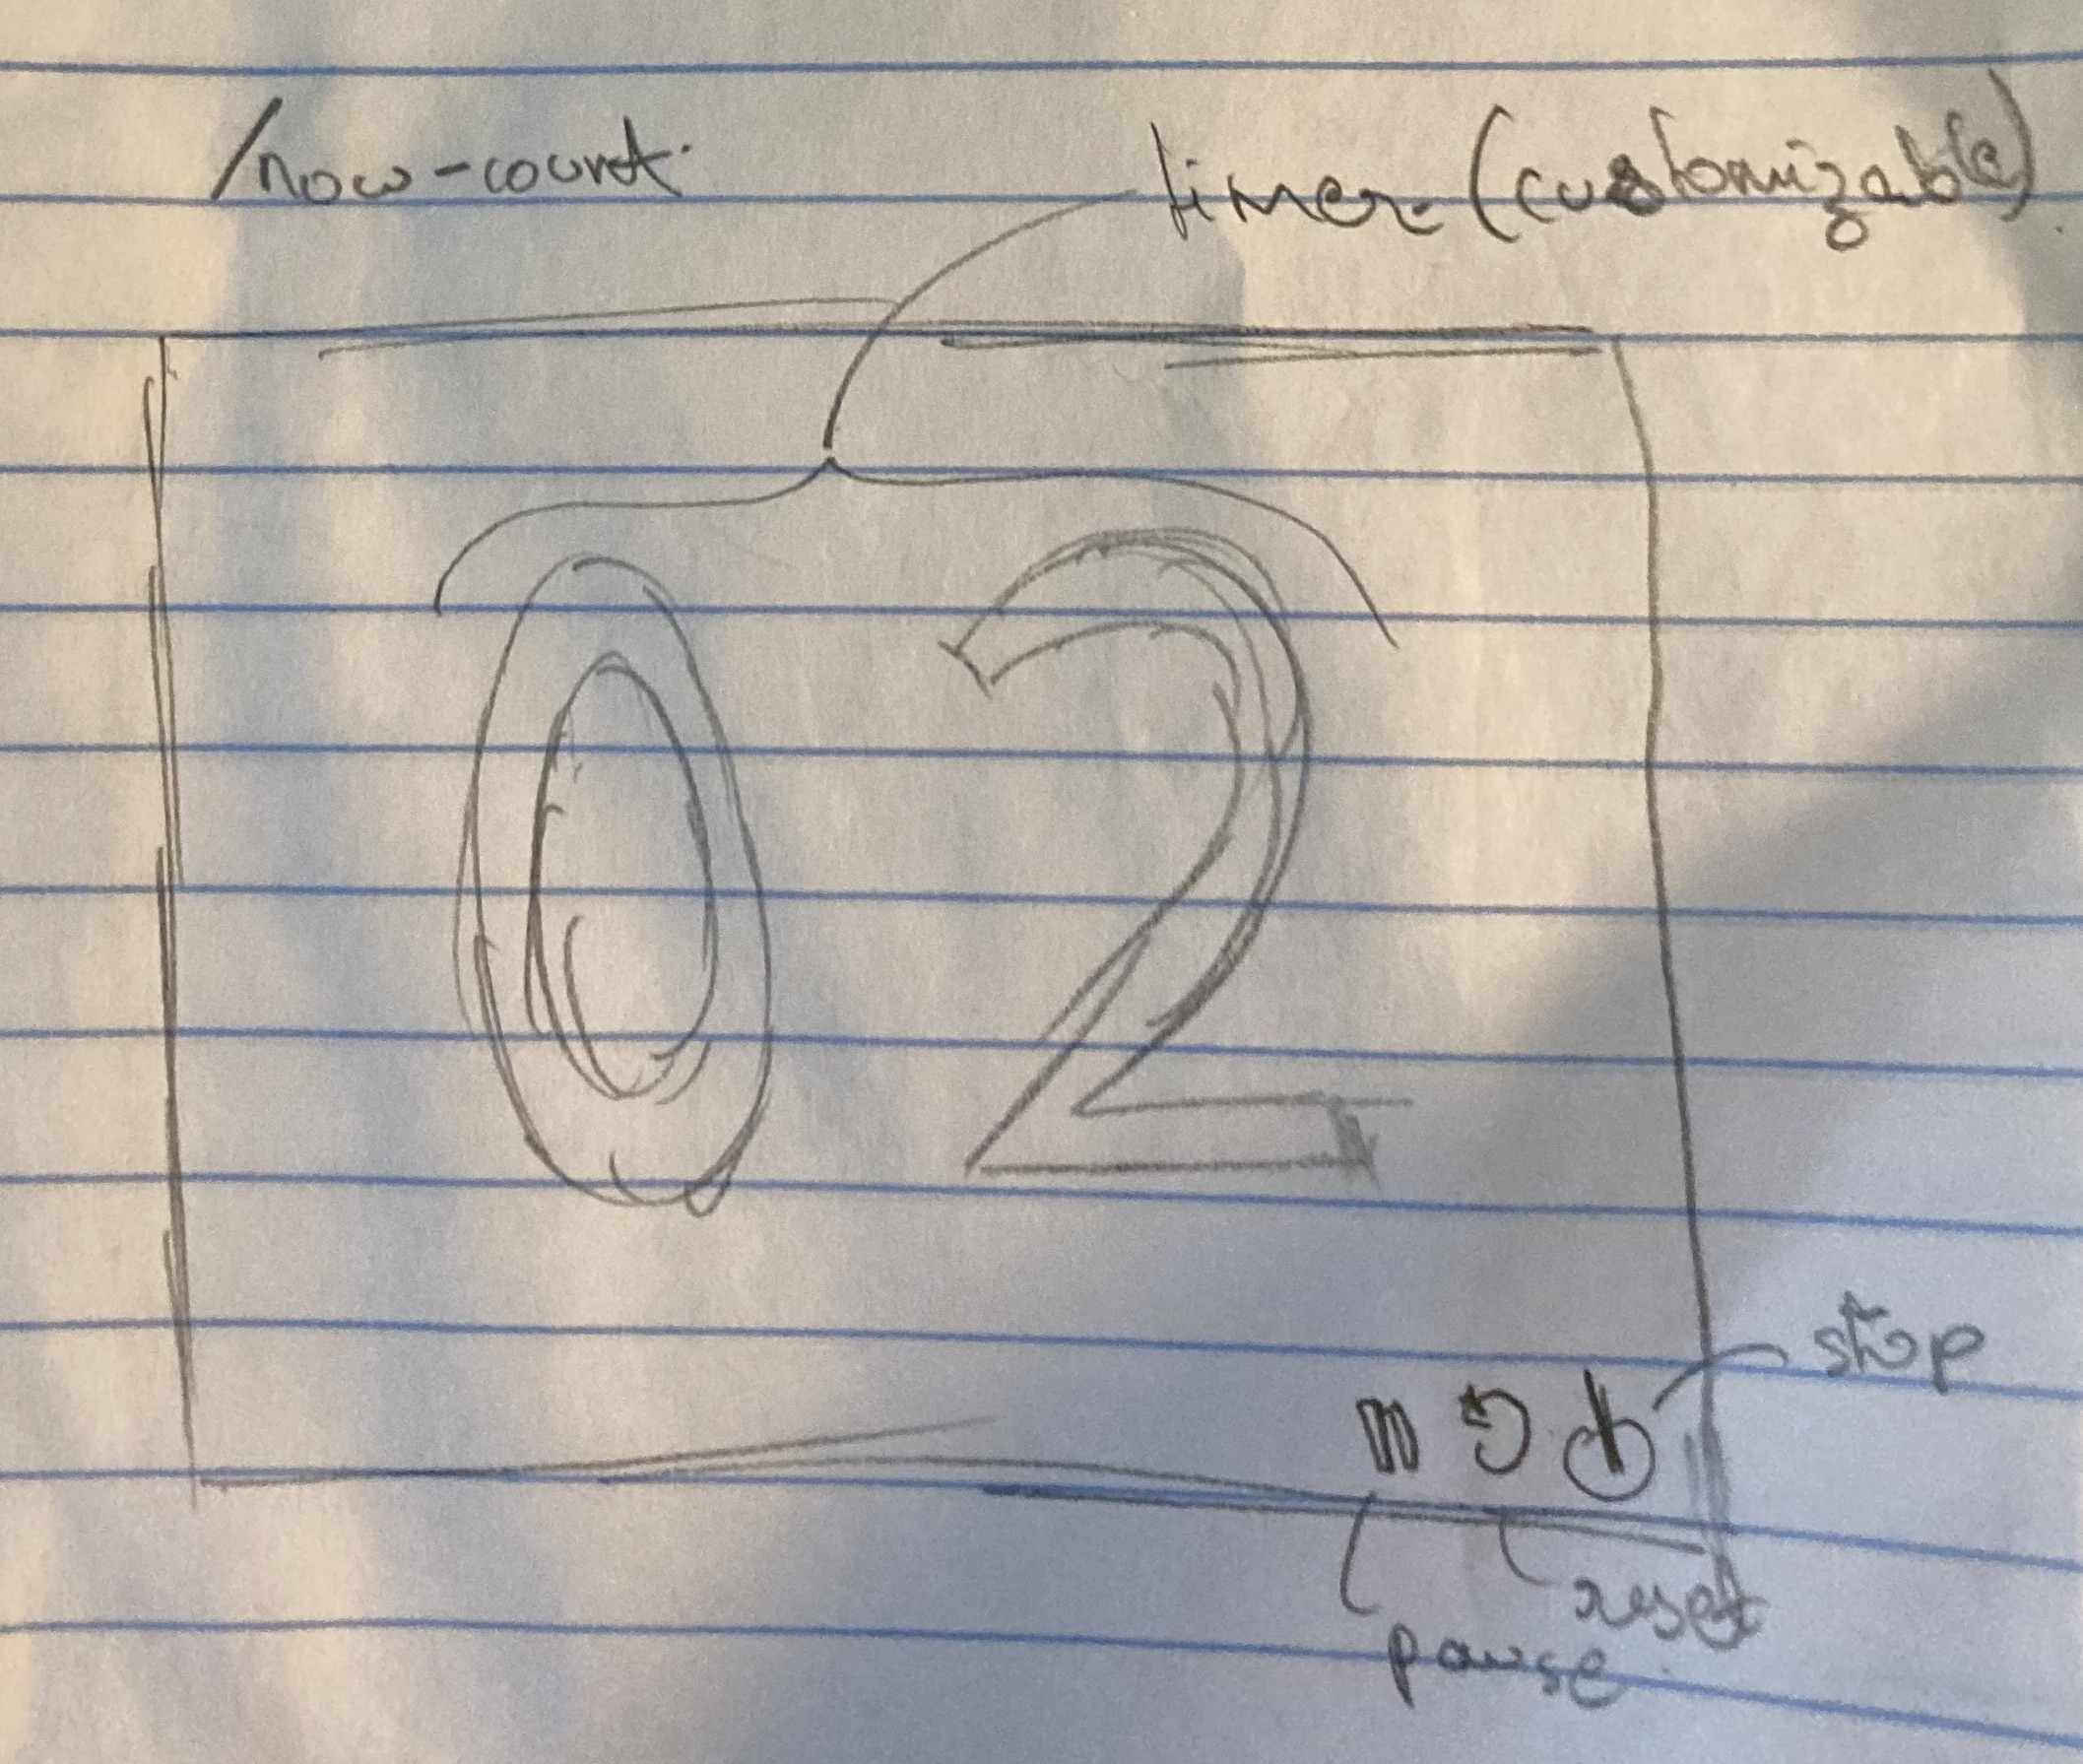 /now-count.
timer (customizable)
02
stop
reset
pause